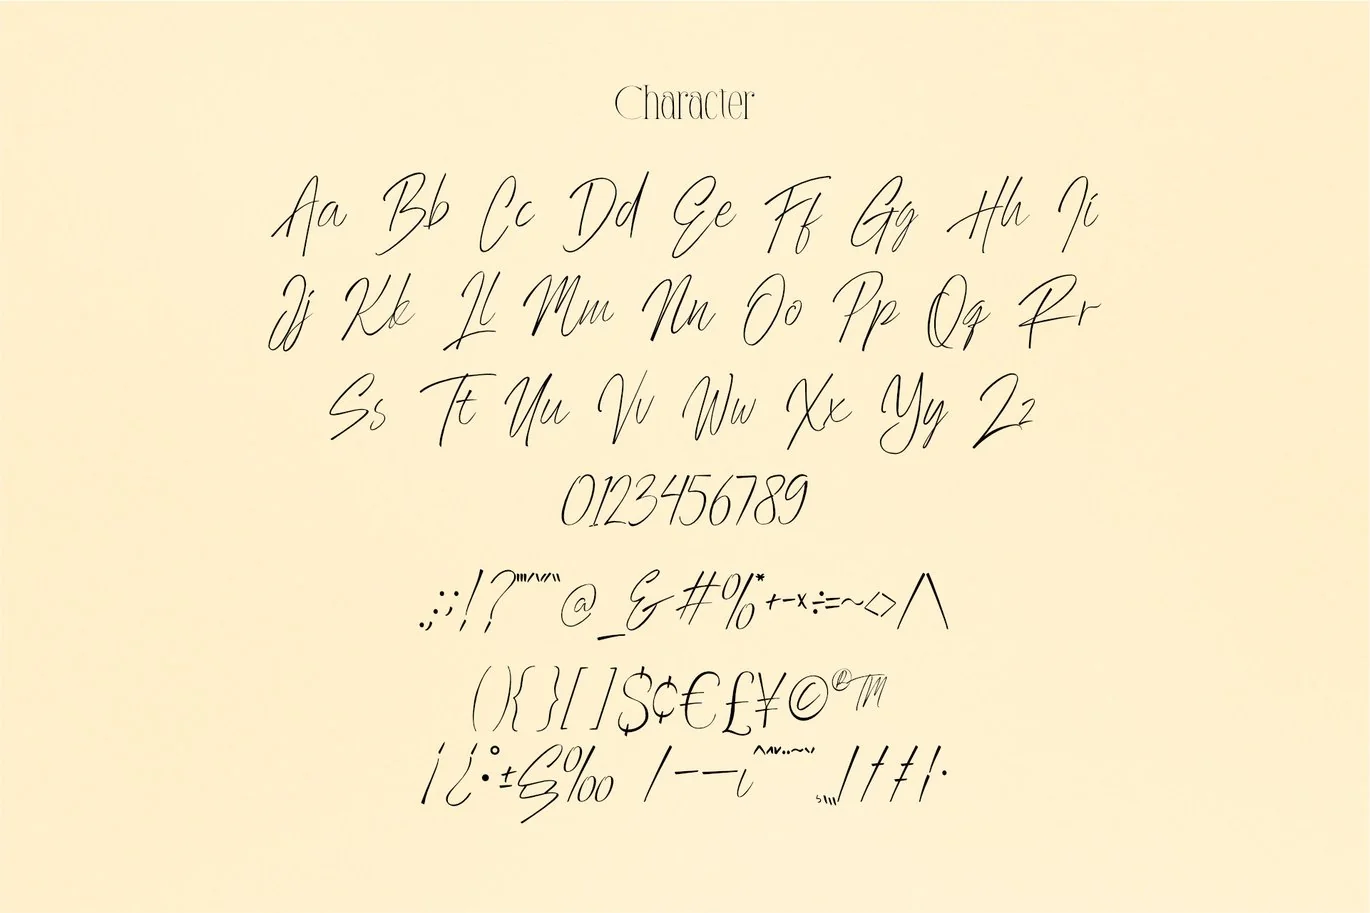 Character
Aa Bb Cc Dd Ee Ff Gg Hh Ii
Jj Kk Ll Mm Nn Oo Pp Qq Rr
Ss Tt Uu Vv Ww Xx Yy Zz
0123456789
.,:;!? @_&#%*+-×÷=~<>/\
(){}[]$¢€£¥©®™
¡¿°•±§‰